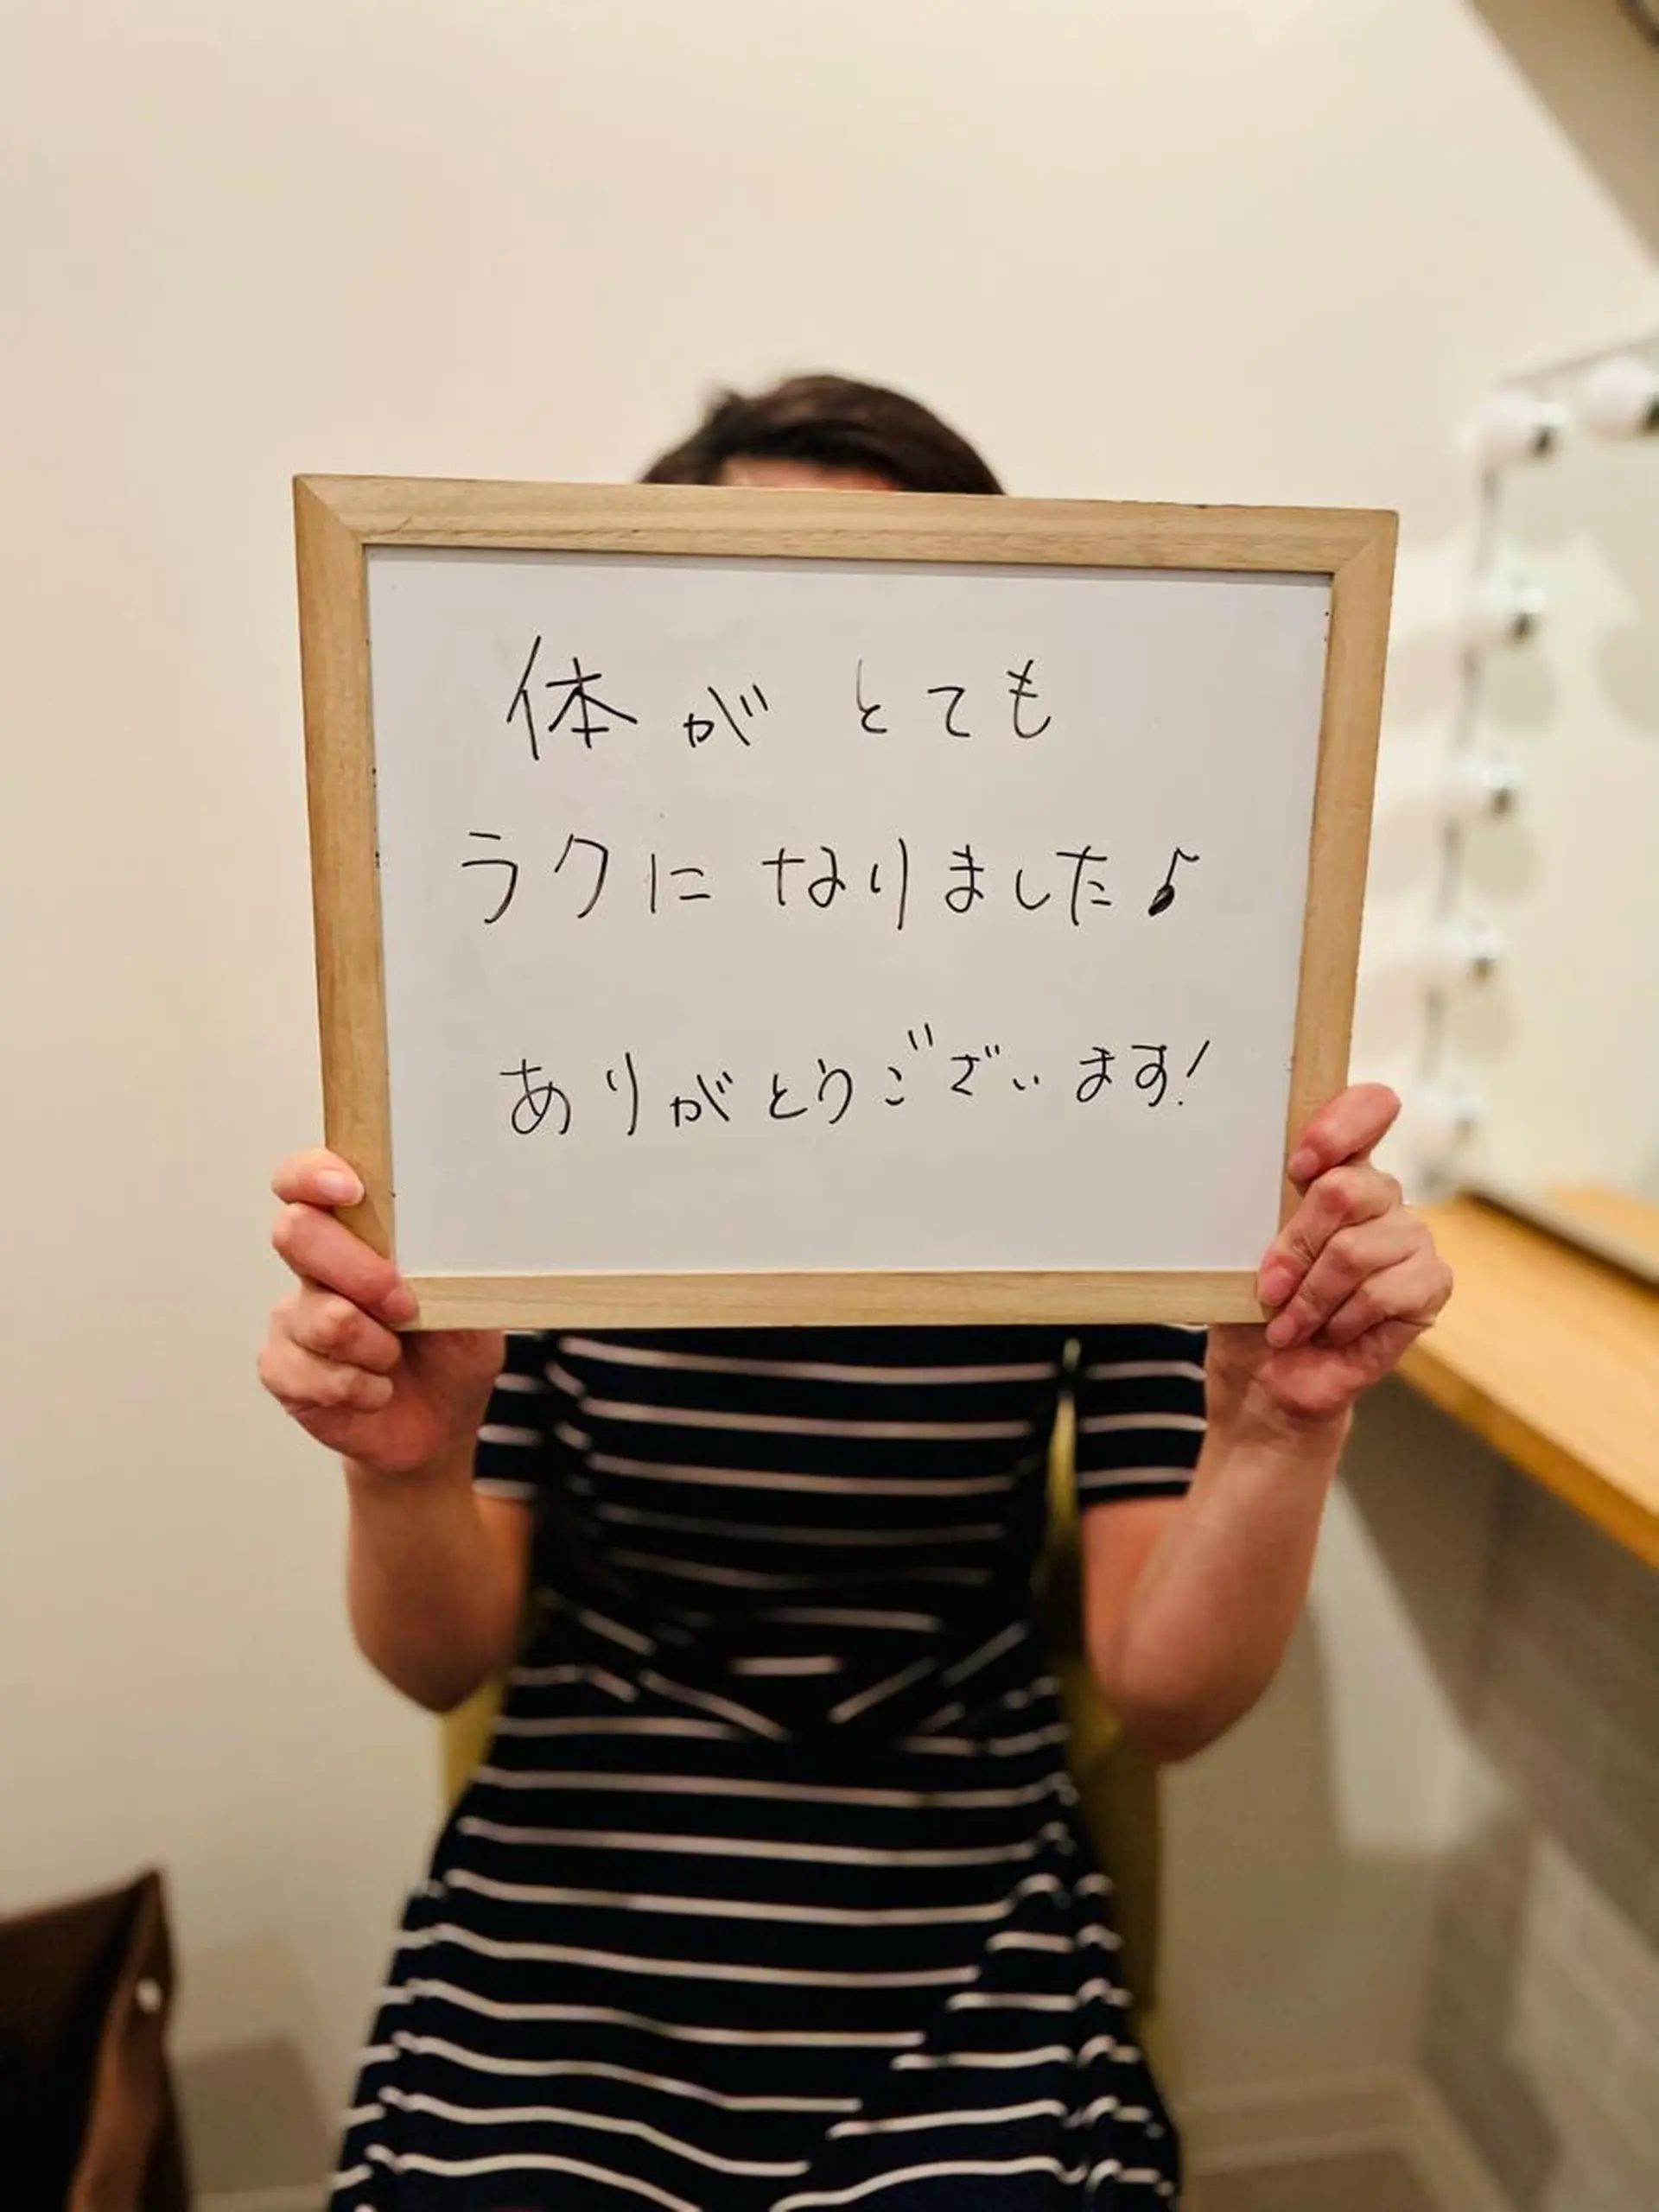 体が とても
ラクに なりました♪
ありがとうございます!